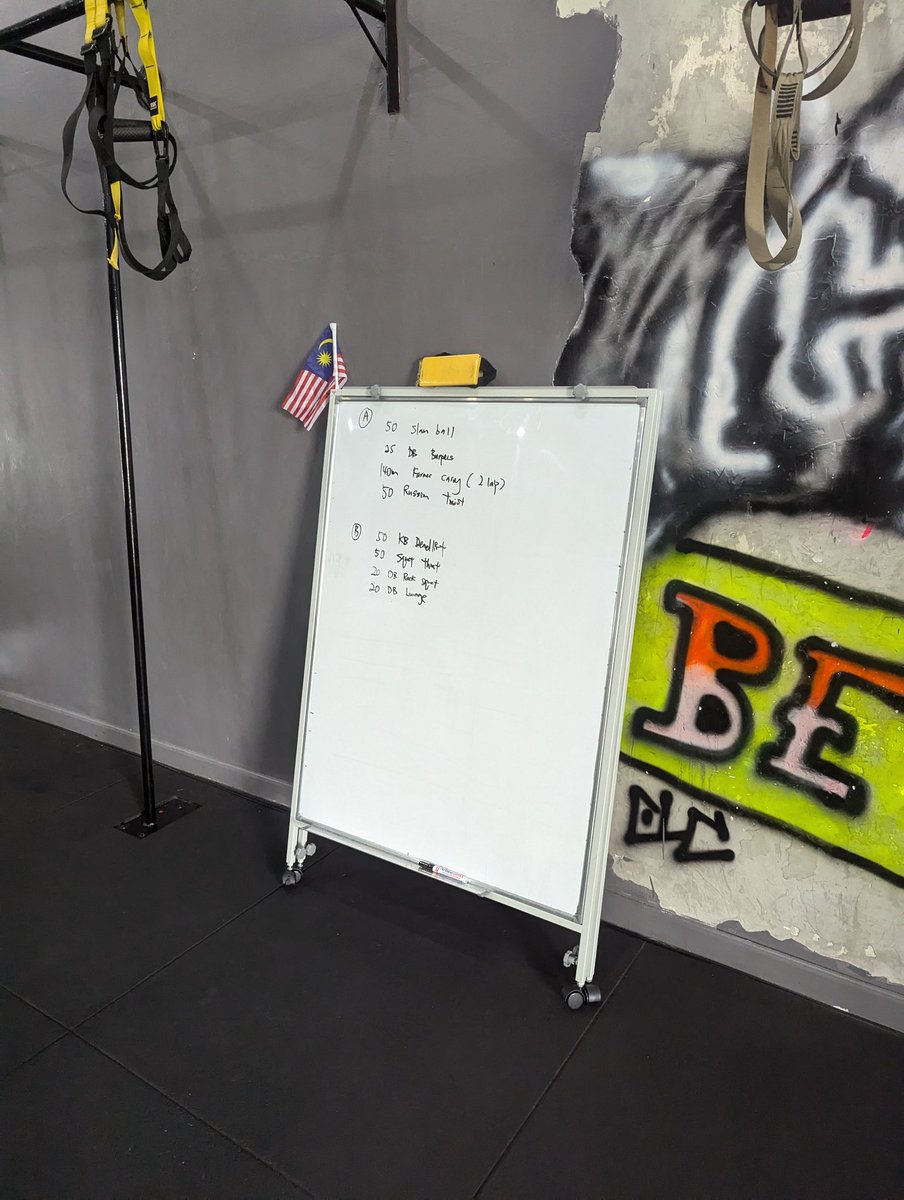 Ⓐ
50 Slam ball
25 DB Burpees
140m Farmer Carry ( 2 lap)
50 Russian twist
Ⓑ
50 KB Deadlift
50 Squat thrust
20 DB Rack Squat
20 DB Lunge
BE